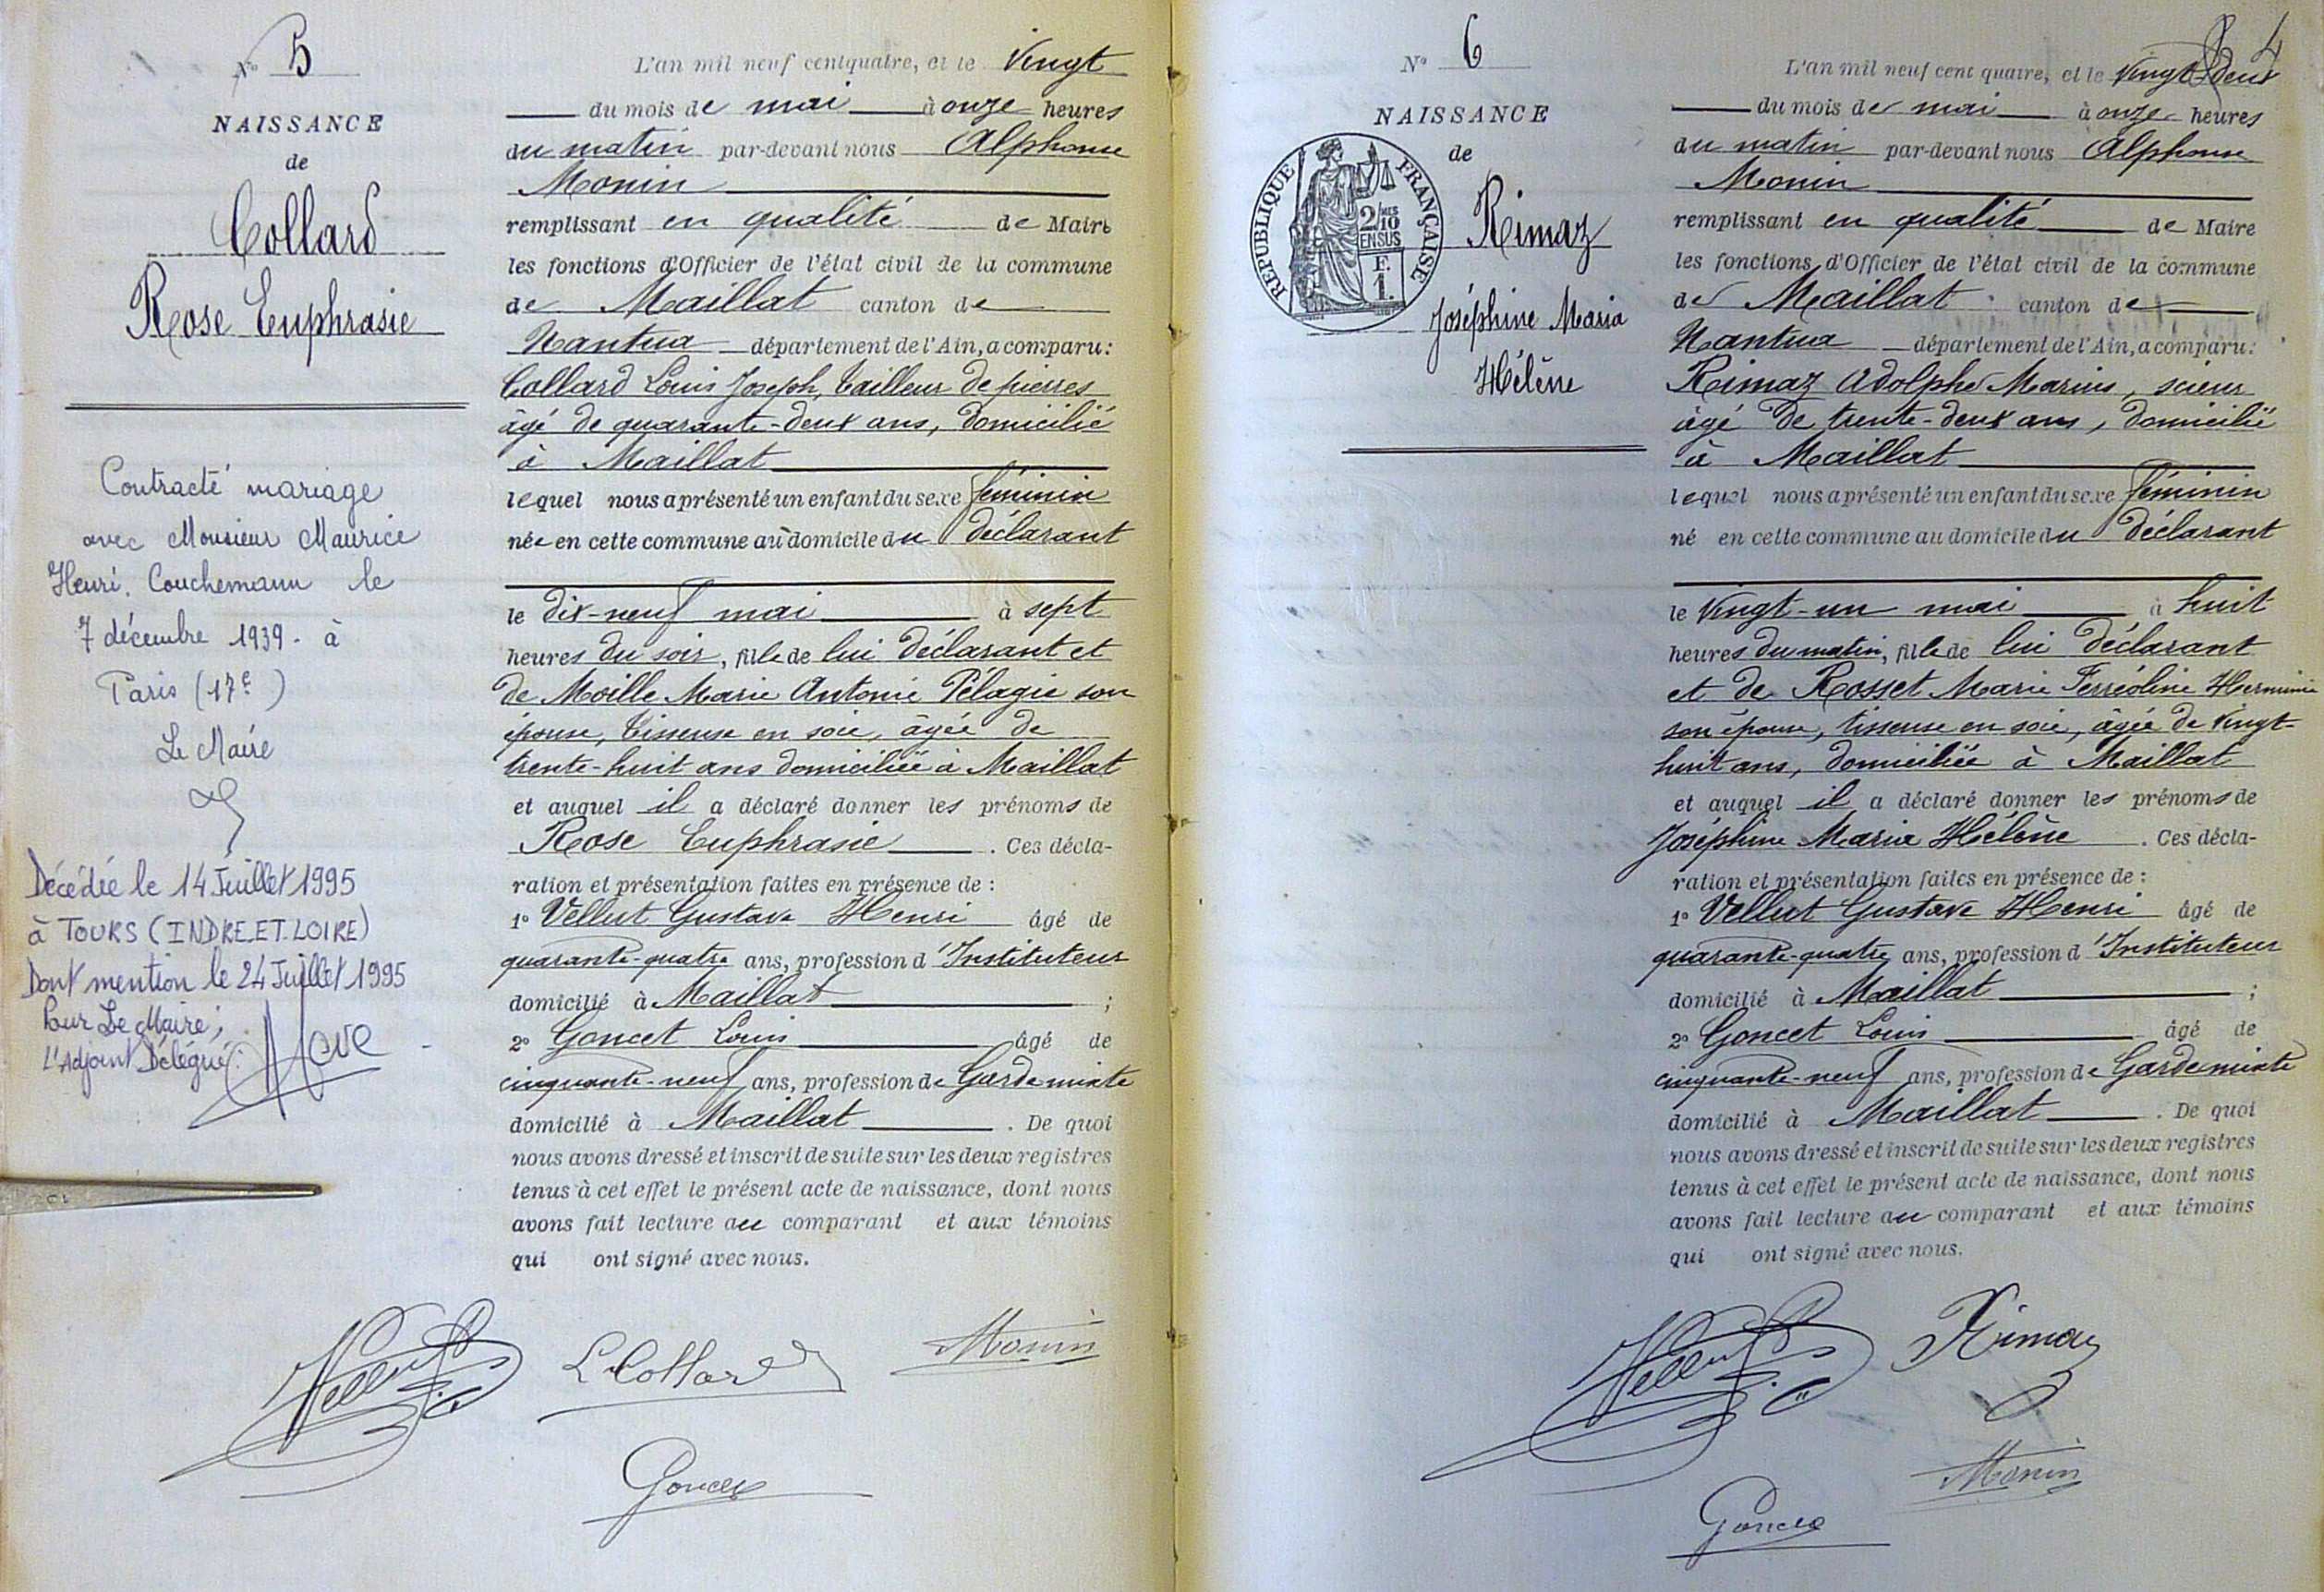 N° 5
NAISSANCE
de
Collard
Rose Euphrasie
Contracté mariage
avec Monsieur Maurice
Henri. Couchemann le
7 décembre 1939 - à
Paris (17e)
Le Maire
Décédée le 14 Juillet 1995
à TOURS (INDRE.ET.LOIRE)
Dont mention le 24 Juillet 1995
Pour Le Maire,
L'Adjoint Délégué.
L'an mil neuf cent quatre, et le Vingt
du mois de mai à onze heures
du matin par-devant nous Alphonse
Monin
remplissant en qualité de Maire
les fonctions d'Officier de l'état civil de la commune
de Maillat canton de
Nantua département de l'Ain, a comparu:
Collard Louis Joseph, tailleur de pierres
âgé de quarante-deux ans, domicilié
à Maillat
lequel nous a présenté un enfant du sexe féminin
née en cette commune au domicile du déclarant
le dix-neuf mai à sept
heures du soir, fille de lui déclarant et
de Moille Marie Antonie Pélagie son
épouse, tisseuse en soie, âgée de
trente-huit ans domiciliée à Maillat
et auquel il a déclaré donner les prénoms de
Rose Euphrasie. Ces décla-
ration et présentation faites en présence de :
1° Vellut Gustave Henri âgé de
quarante-quatre ans, profession d'Instituteur
domicilié à Maillat ;
2° Goncet Louis âgé de
cinquante-neuf ans, profession de Garde mixte
domicilié à Maillat. De quoi
nous avons dressé et inscrit de suite sur les deux registres
tenus à cet effet le présent acte de naissance, dont nous
avons fait lecture au comparant et aux témoins
qui ont signé avec nous.
Vellut L Collard Monin
Goncet
4
N° 6
NAISSANCE
de
RÉPUBLIQUE FRANÇAISE
2/10 MES
EN SUS
F.
1.
Rimaz
Joséphine Maria
Hélène
L'an mil neuf cent quatre, et le Vingt-deux
du mois de mai à onze heures
du matin par-devant nous Alphonse
Monin
remplissant en qualité de Maire
les fonctions d'Officier de l'état civil de la commune
de Maillat canton de
Nantua département de l'Ain, a comparu:
Rimaz Adolphe Marius, scieur
âgé de trente-deux ans, domicilié
à Maillat
lequel nous a présenté un enfant du sexe féminin
né en cette commune au domicile du déclarant
le Vingt-un mai à huit
heures du matin, fille de lui déclarant
et de Rosset Marie Ferréoline Herminie
son épouse, tisseuse en soie, âgée de vingt-
huit ans, domiciliée à Maillat
et auquel il a déclaré donner les prénoms de
Joséphine Maria Hélène. Ces décla-
ration et présentation faites en présence de :
1° Vellut Gustave Henri âgé de
quarante-quatre ans, profession d'Instituteur
domicilié à Maillat ;
2° Goncet Louis âgé de
cinquante-neuf ans, profession de Garde mixte
domicilié à Maillat. De quoi
nous avons dressé et inscrit de suite sur les deux registres
tenus à cet effet le présent acte de naissance, dont nous
avons fait lecture au comparant et aux témoins
qui ont signé avec nous.
Vellut Rimaz
Monin
Goncet